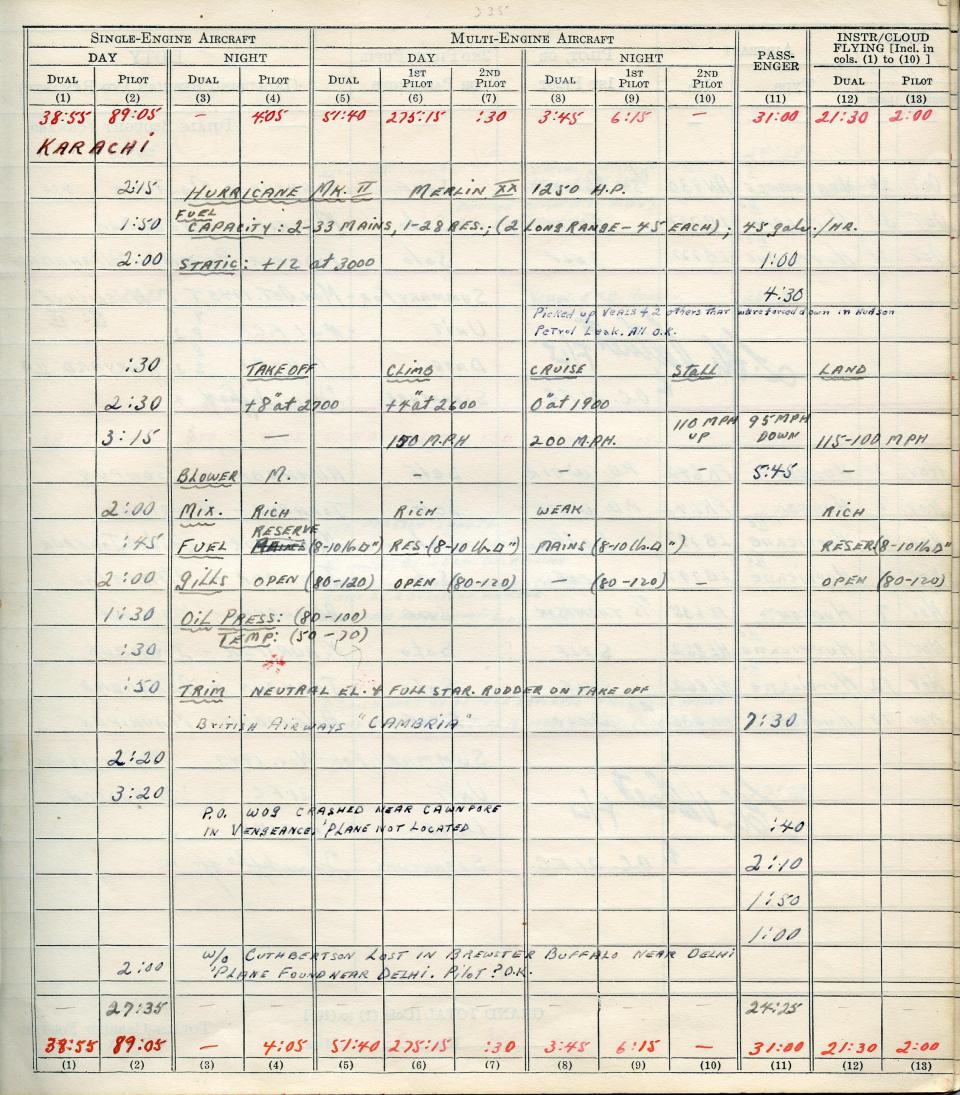 335
SINGLE-ENGINE AIRCRAFT MULTI-ENGINE AIRCRAFT PASS-ENGER INSTR/CLOUD FLYING [Incl. in cols. (1) to (10) ]
DAY NIGHT DAY NIGHT
DUAL PILOT DUAL PILOT DUAL 1ST PILOT 2ND PILOT DUAL 1ST PILOT 2ND PILOT DUAL PILOT
(1) (2) (3) (4) (5) (6) (7) (8) (9) (10) (11) (12) (13)
38:55 89:05 — 4:05 51:40 275:15 :30 3:45 6:15 — 31:00 21:30 2:00
KARACHI
2:15 HURRICANE MK. II MERLIN XX 1250 H.P.
1:50 FUEL CAPACITY: 2-33 MAINS, 1-28 RES.; (2 LONG RANGE - 45 EACH); 45 gals./HR.
2:00 STATIC: +12 at 3000 1:00
4:30
Picked up VEALS + 2 others that were forced down in Hudson
Petrol Leak. All O.K.
:30 TAKE OFF CLIMB CRUISE STALL LAND
2:30 +8" at 2700 +4" at 2600 0" at 1900
3:15 — 150 M.P.H 200 M.P.H. 110 MPH UP 95 MPH DOWN 115-100 MPH
BLOWER M. — — — 5:45 —
2:00 MIX. RICH RICH WEAK RICH
:45 FUEL RESERVE MAINS (8-10 lb.□") RES. (8-10 lb.□") MAINS (8-10 lb.□") RESER (8-10 lb.□")
2:00 gills OPEN (80-120) OPEN (80-120) — (80-120) — OPEN (80-120)
1:30 OIL PRESS: (80-100)
:30 TEMP: (50-70)
:50 TRIM NEUTRAL EL. + FULL STAR. RUDDER ON TAKE OFF
BRITISH AIRWAYS "CAMBRIA" 7:30
2:20
3:20
P.O. WOG CRASHED NEAR CAWNPORE
IN VENGEANCE. 'PLANE NOT LOCATED :40
2:10
1:50
1:00
W/O CUTHBERTSON LOST IN BREWSTER BUFFALO NEAR DELHI
2:00 'PLANE FOUND NEAR DELHI. Pilot? O.K.
— 27:35 — — — — — — — — 24:25 — —
38:55 89:05 — 4:05 51:40 275:15 :30 3:45 6:15 — 31:00 21:30 2:00
(1) (2) (3) (4) (5) (6) (7) (8) (9) (10) (11) (12) (13)